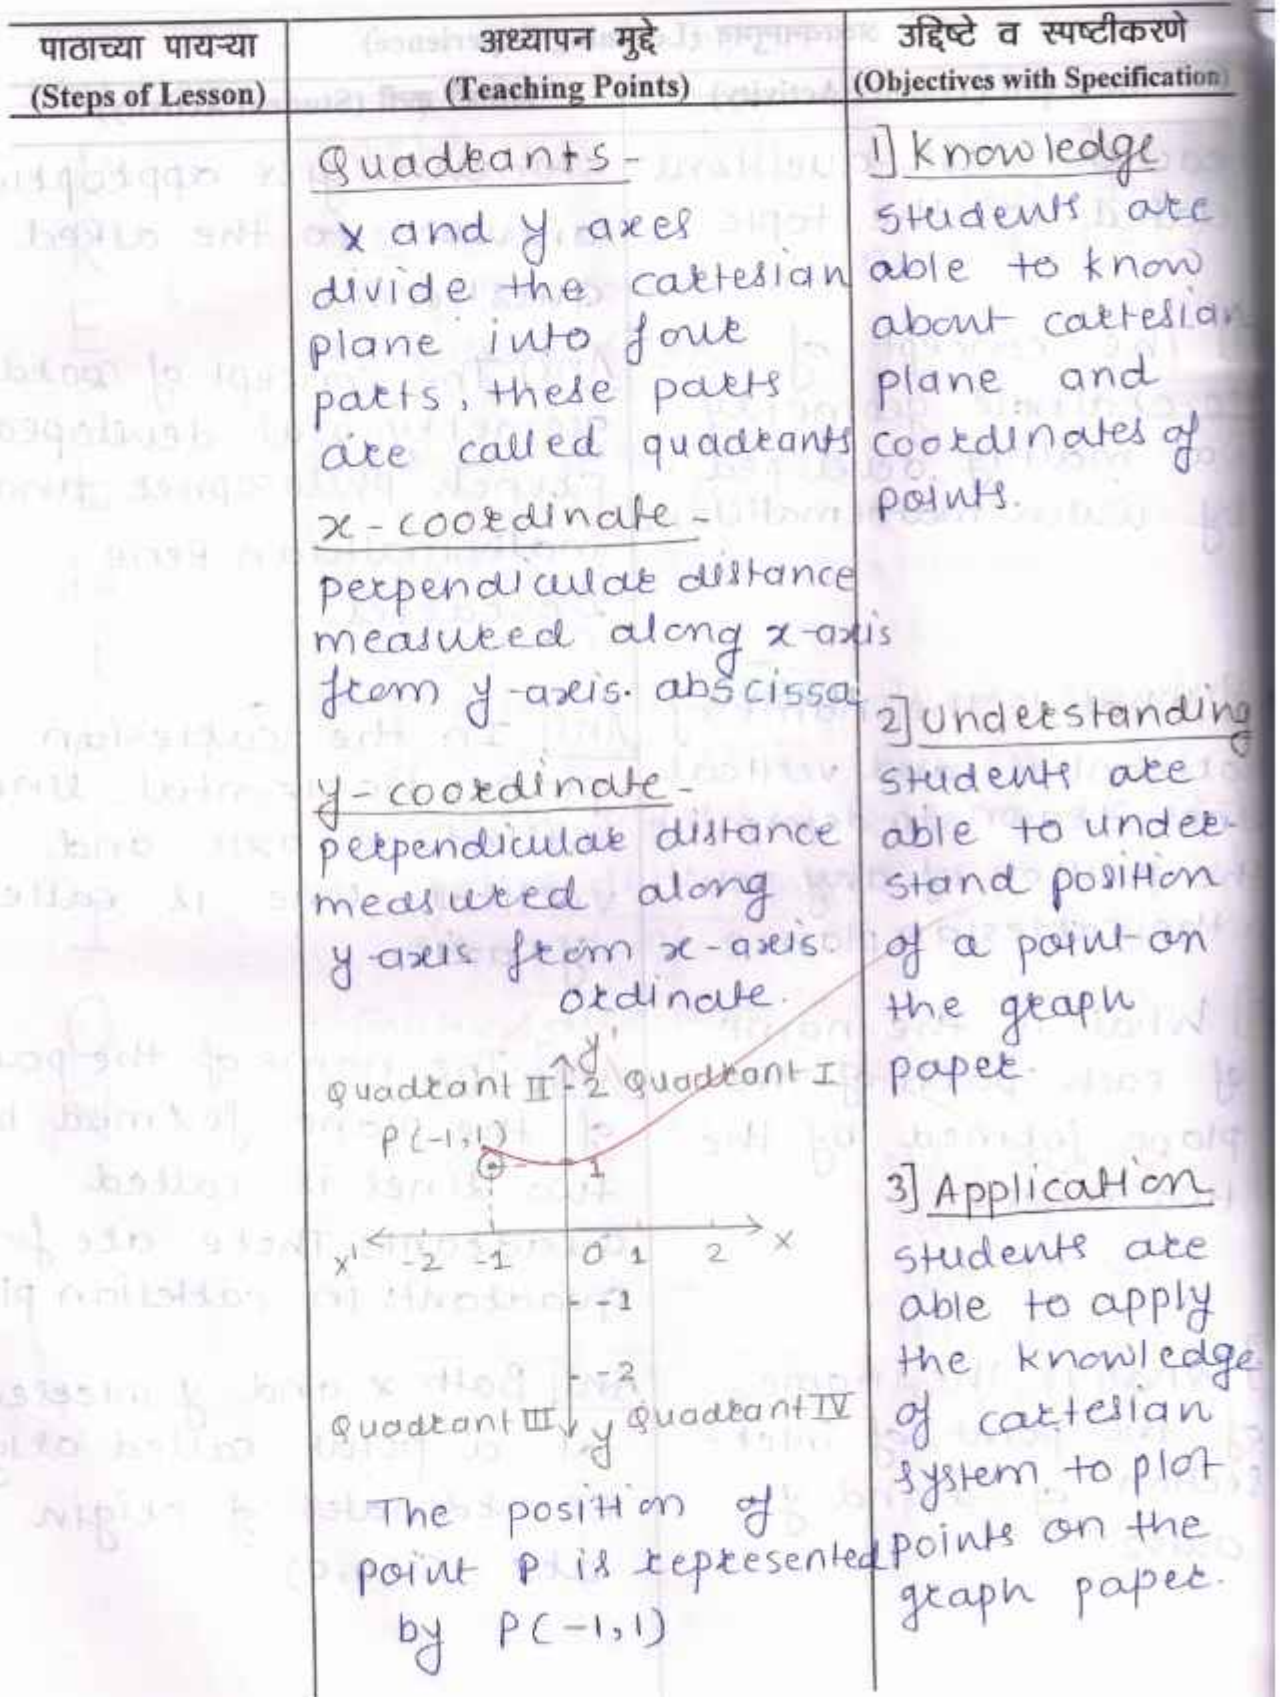 पाठाच्या पायऱ्या
(Steps of Lesson)
अध्यापन मुद्दे
(Teaching Points)
उद्दिष्टे व स्पष्टीकरणे
(Objectives with Specification)
Quadrants -
x and y axes
divide the cartesian
plane into four
parts, these parts
are called quadrants
x - coordinate -
perpendicular distance
measured along x-axis
from y-axis. abscissa
y - coordinate -
perpendicular distance
measured along
y-axis from x-axis.
ordinate.
y'
Quadrant II
2
Quadrant I
P(-1,1)
1
x'
-2
-1
0
1
2
X
-1
-2
Quadrant III
y
Quadrant IV
The position of
point P is represented
by P(-1,1)
1] Knowledge
students are
able to know
about cartesian
plane and
coordinates of
points.
2] Understanding
students are
able to under-
stand position
of a point on
the graph
paper.
3] Application
students are
able to apply
the knowledge
of cartesian
system to plot
points on the
graph paper.